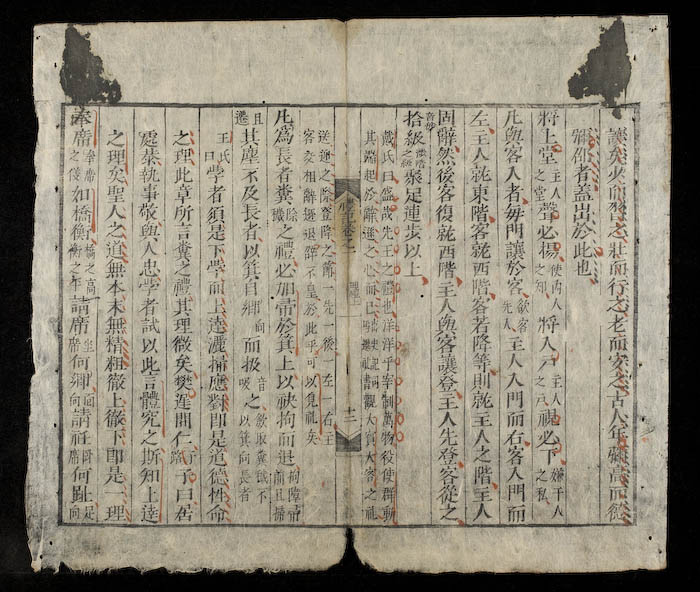 讓矣少而習之壯而行之老而安之古人年彌高而德
彌卲者蓋出於此也
將上堂主人之堂聲必揚使內人之知將入戶主人之戶視必下嫌干人之私
凡與客入者每門讓於客欲客先入主人入門而右客入門而
左主人就東階客就西階客若降等則就主人之階主人
固辭然後客復就西階主人與客讓登主人先登客從之
拾級聚足連步以上
戴氏曰盛哉先王之禮也洋洋乎宰制萬物役使群動
其端起於辭遜之心而已禮書觀大賓大客之禮
卷之一
十二
送逆之際登降之節一先一後一左一右主
客交相辭遜退辟不皇於此乎可以見禮矣
凡為長者糞除穢之禮必加帚於箕上以袂拘而退拘障帚前且掃
且遷其塵不及長者以箕自鄉向而扱音吸之歛取糞穢不以箕向長者
王氏曰學者須是下學而上達灑掃應對即是道德性命
之理此章所言糞之禮其理微矣樊遲問仁子曰居
處恭執事敬與人忠學者試以此言體究之斯知上達
之理矣聖人之道無本末無精粗徹上徹下即是一理
奉席奉席之儀如橋衡橋之高衡之平請席坐席何鄉向請衽臥席何趾足向